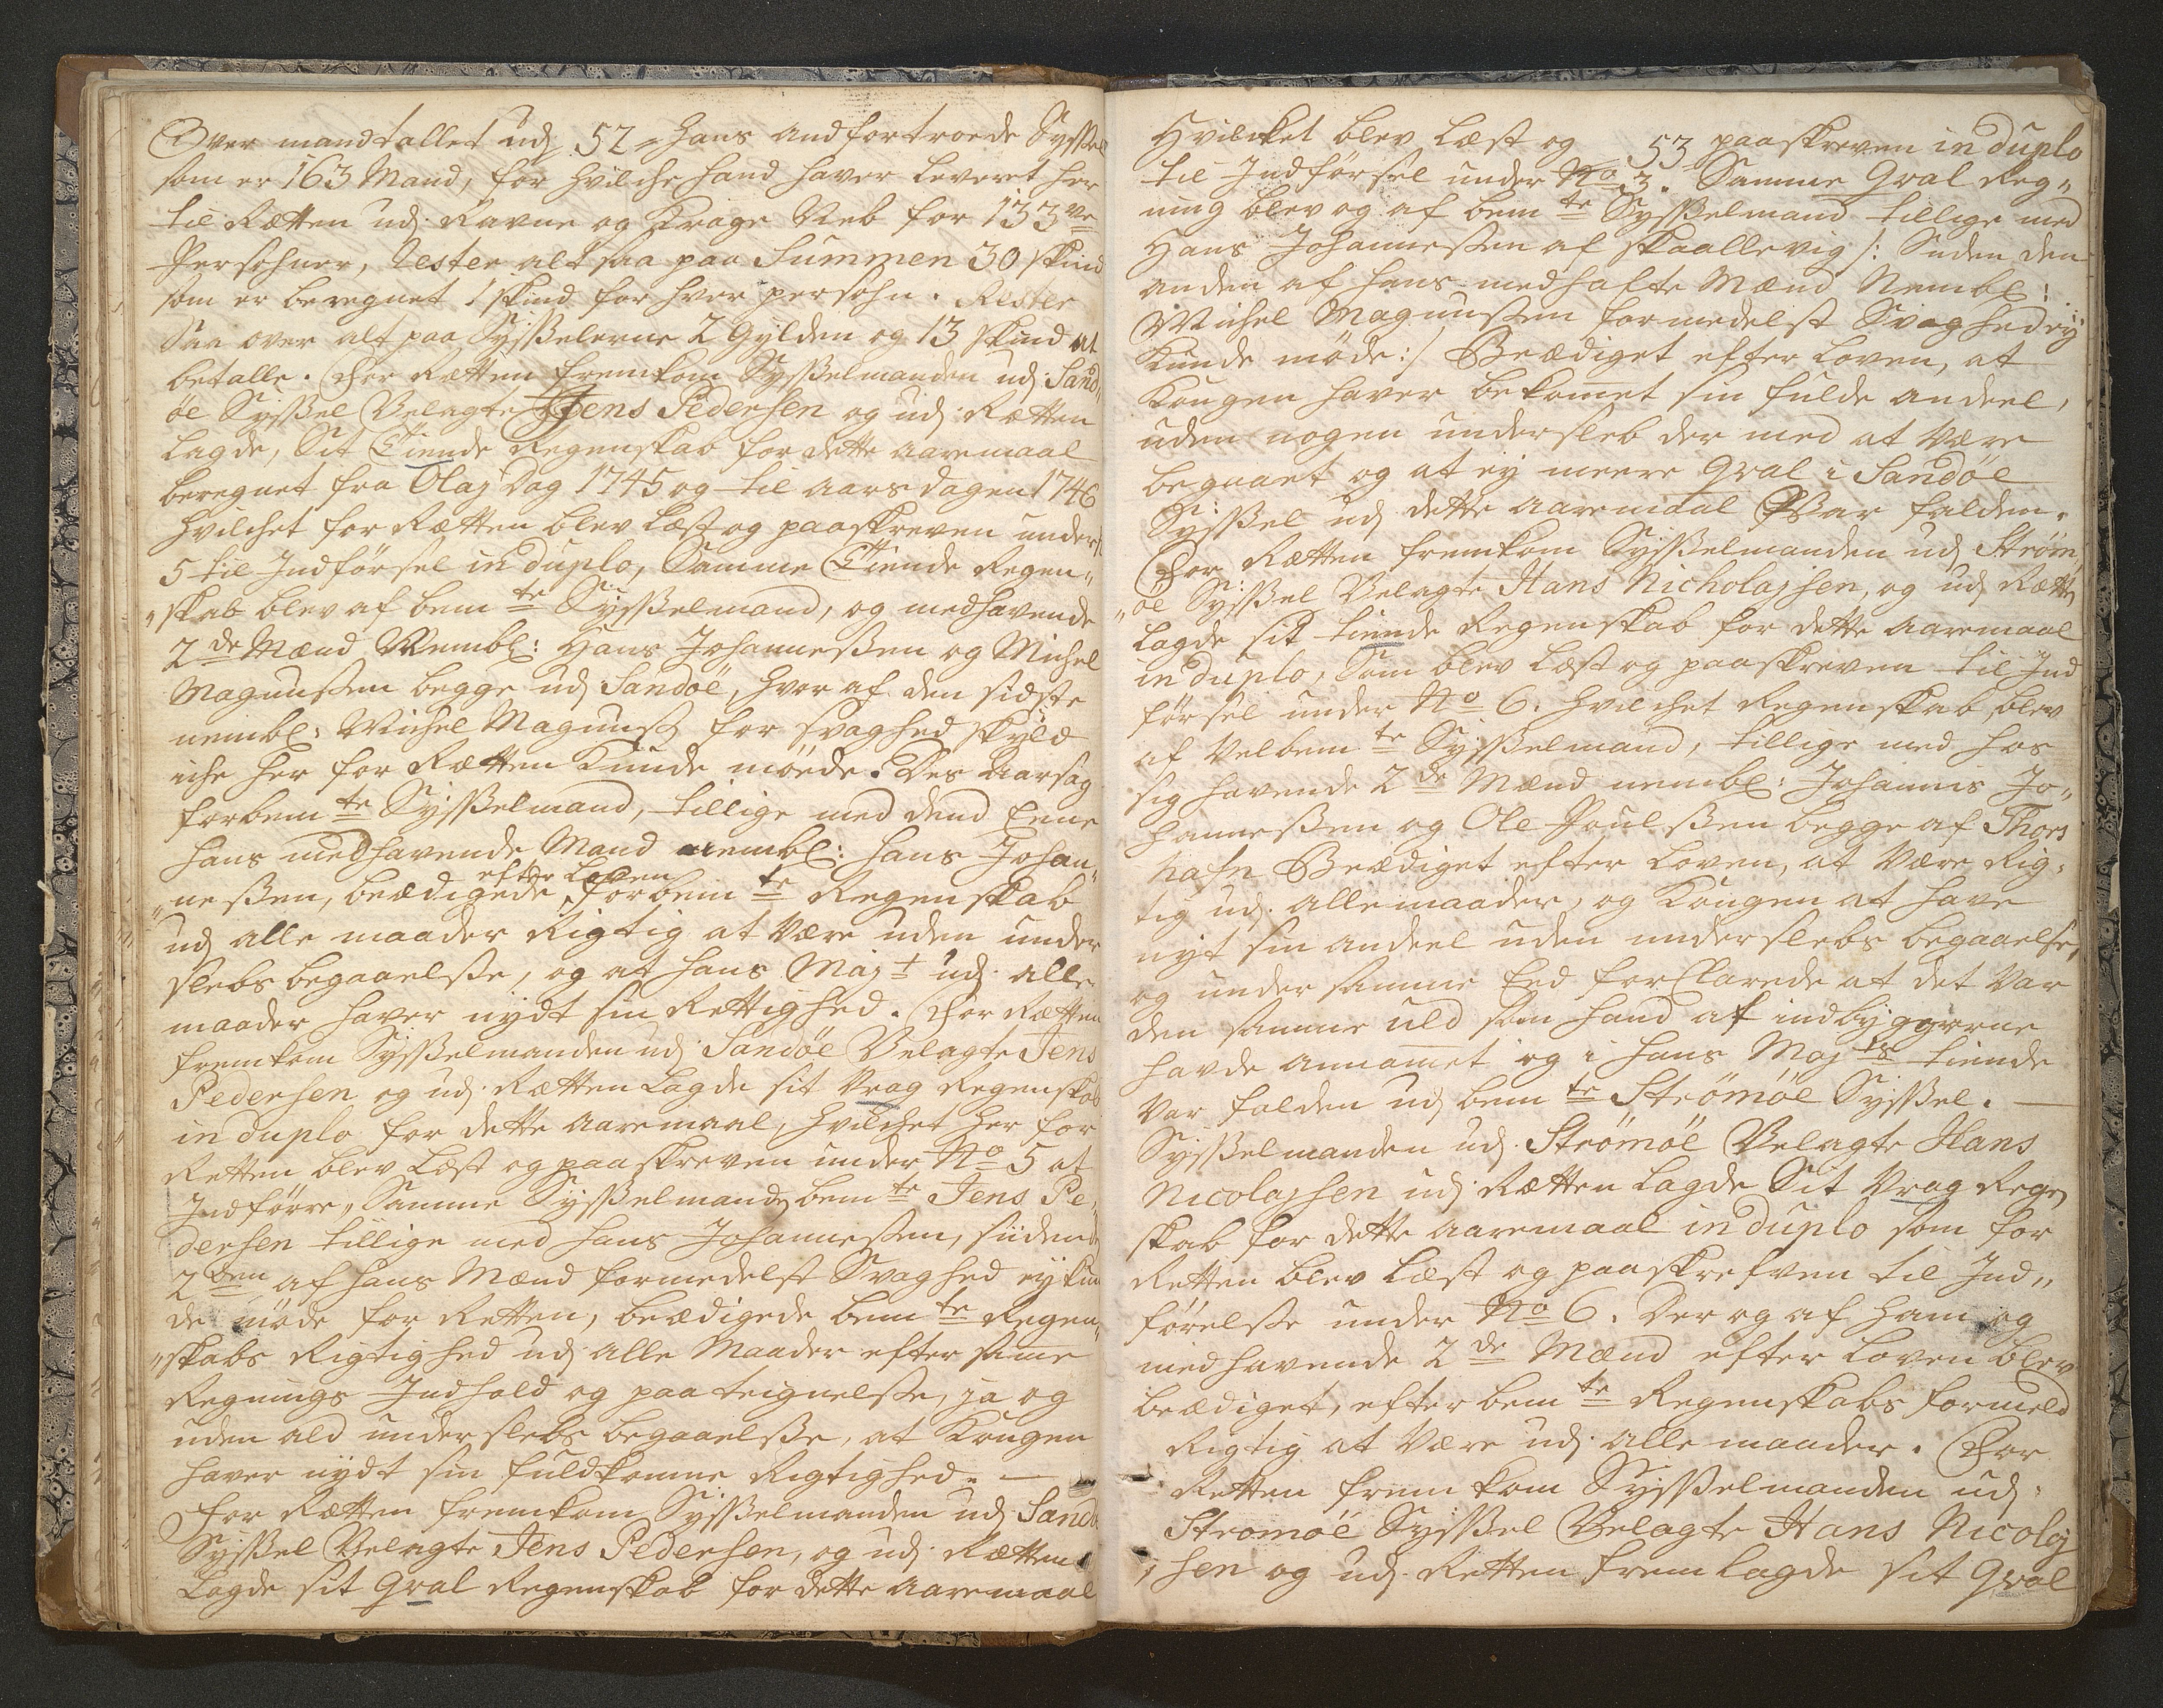 Over mandtallet udj 52 = hans andfortroede Syssel
som er 163 Mand, for hvilche hand haver leveret her
til Rætten udj Ravne og Krage Neb for 133 ve
Persohner, Rester alt saa paa Summen 30 skind
som er beregnet 1 skind for hver persohn. Rester
Saa over alt paa Sysselerne 2 Gylden og 13 skind at
betalle. For Rætten fremkom Sysselmanden udj Sand„
öe Syssel Velagte Jens Pedersen og udj Rætten
lagde, Sit Tiende Regenskab for dette aaremaal
beregnet fra Olaj Dag 1745 og til aarsdagen 1746
hvilchet for Rætten blev læst og paaskreven under
5 til Indförsel in duplo, Samme Tiende Regen„
„skab blev af bem te Sysselmand, og medhavende
2 de Mænd Nembl: Hans Johannessen og Michel
Magnussen begge udj Sandöe, hvor af den sidste
nembl: Michel Magnuss for svaghed skyld
iche her for Rætten Kunde möede. Des Aarsag
forbem te Sysselmand, tillige med dend Eene
hans medhavende Mand nembl: Hans Johan„
efter Loven
„nessen, beædigede forbem te Regenskab
udj alle maader Rigtig at være uden under
slebs begaaelsse, og at hans Maj t udj alle
maader haver nydt sin Rettighed. For Rætten
fremkom Sysselmanden udj Sandöe Velagte Jens
Pedersen og udj Rætten Lagde sit Vrag Regenskab
in duplo for dette aaremaal, hvilchet her for
Retten blev Læst og paaskreven under No 5 at
Indförre, Samme Sysselmand bem te Jens Pe„
dersen tillige med Hans Johannessen, siiden
2 den af hans Mænd formedelst Svaghed ey kun
de möde for Retten, beædigede bem te Regen„
„skabs Rigtighed udj alle Maader efter samme
Regnings Indhold og paateignelsse, ja og
uden ald underslebs begaaelsse, at Kongen
haver nydt sin fuldkomne Rigtighed. —
For Rætten fremkom Sysselmanden udj Sandö
Syssel Velagte Jens Pedersen, og udj Rætten
Lagde sit Qval Regenskab for dette aaremaal
Hvilcket blev Læst og 53 paaskreven in duplo
til Indförsel under No 3. Samme Qval Reg„
ning blev og af bem te Sysselmand tillige med
Hans Johannessen af skaallevig /: Siiden den
anden af hans medhafte Mænd Nembl:
Michel Magnussen formedelst Svaghed ey
Kunde möde :/ Beædiget efter Loven, at
Kongen haver bekommet sin fulde andeel,
uden nogen undersleb der med at være
begaaet og at ey meere Qval i Sandöe
Syssel udj dette aaremaal Var falden.
For Rætten fremkom Sysselmanden udj Ström„
„öe Syssel Velagte Hans Nicholajsen, og udj Rætten
Lagde sit tiende Regenskab for dette aaremaal
in duplo, Som blev Læst og paaskreven til Ind
försel under No 6. hvilchet Regenskab blev
af Velbem te Sysselmand, tillige med hos
sig havende 2 de Mænd nembl: Johannis Jo„
hannessen og Ole Poulssen begge af Thors
hafn Beædiget efter Loven, at være Rig„
tig udj alle maader, og Kongen at have
nyt sin andeel uden underslebs begaaelse,
og under samme Eed forClarede at det Var
den samme uld som hand af indbyggerne
havde annammet og i hans Maj ts tiende
Var falden udj bem te Strömöe Syssel. —
Sysselmanden udj Strömöe Velagte Hans
Nicolajsen udj Rætten Lagde Sit Vrag Regen
skab for dette aaremaal in duplo som for
Retten blev Læst og paaskrefven til Ind„
förelsse under No 6. Der og af ham og
medhavende 2 de Mænd efter Loven blev
beædiget, efter bem te Regenskabs formeld
Rigtig at Være udj alle maader. For
Retten fremkom Sysselmanden udj
Stromöe Syssel Velagte Hans Nicolaj
„sen og udj Retten fremlagde sit Qval